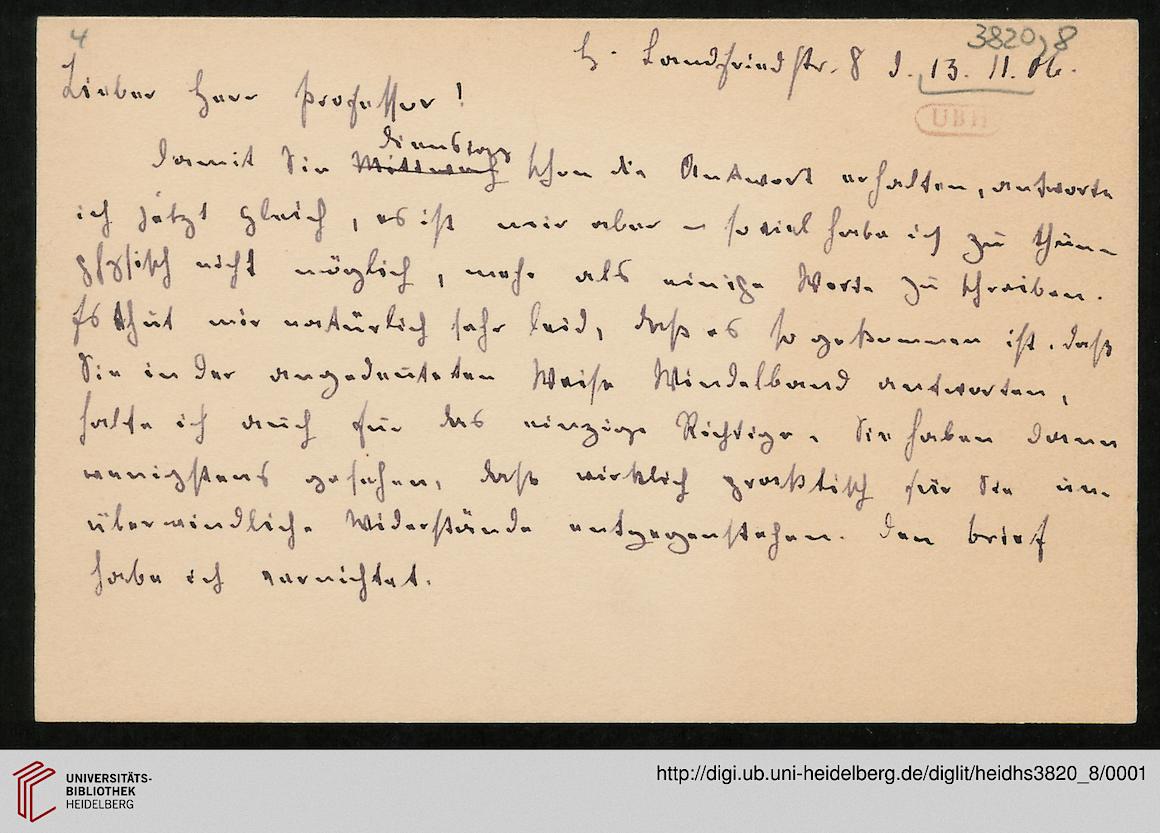 4
3820,8
H. Landfriedstr. 8 d. 13. 11. 06.
UBH
Lieber Herr Professor!
Dienstag
Damit Sie Mittwoch schon die Antwort erhalten, antworte
ich jetzt gleich, es ist mir aber – soviel habe ich zu thun –
physisch nicht möglich, mehr als einige Worte zu schreiben.
Es thut mir natürlich sehr leid, daß es so gekommen ist. Daß
Sie in der angedeuteten Weise Windelband antworten,
halte ich auch für das einzige Richtige. Sie haben dann
wenigstens gesehen, daß wirklich praktisch für Sie un-
überwindliche Widerstände entgegenstehen. Den Brief
habe ich vernichtet.
UNIVERSITÄTS-
BIBLIOTHEK
HEIDELBERG
http://digi.ub.uni-heidelberg.de/diglit/heidhs3820_8/0001